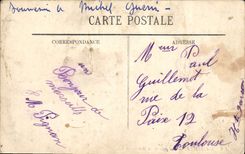 Souvenir de Michel Guerin
CARTE POSTALE
CORRESPONDANCE
ADRESSE
un
Bonjour de
Marseille
M. Pignan
Mr Paul
Guillemot
rue de la
Paix 12
Toulouse